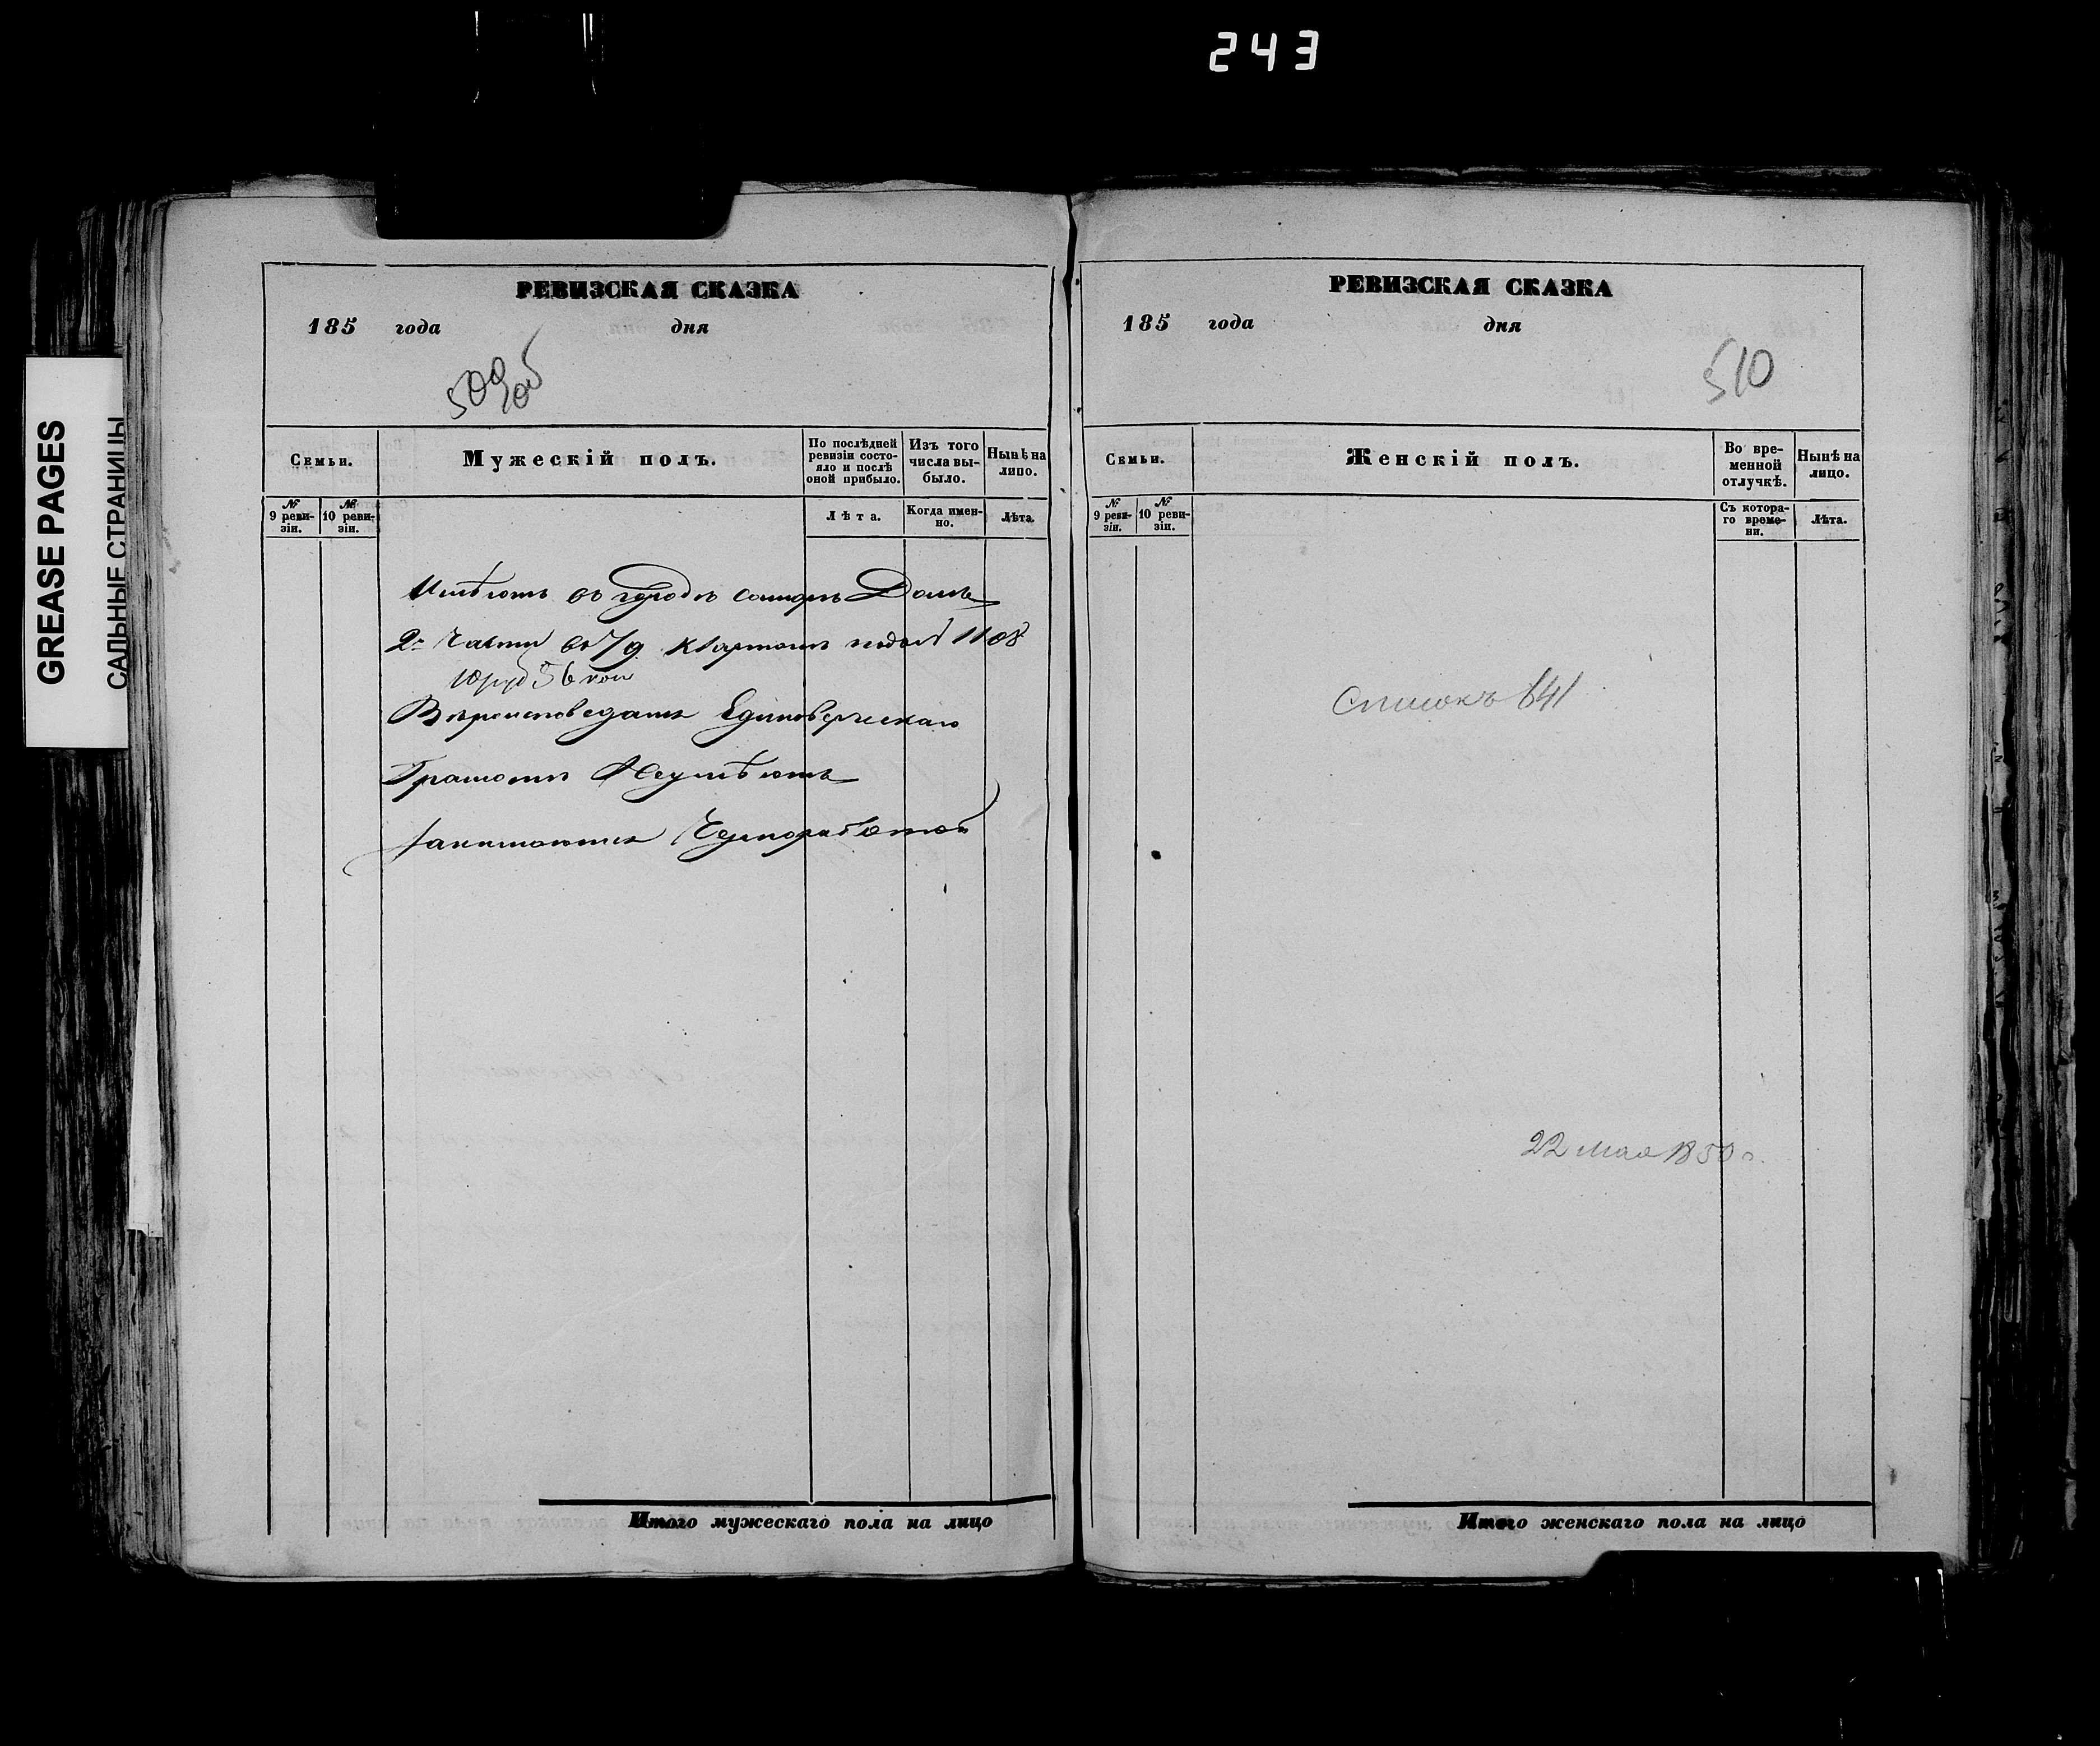 243
GREASE PAGES
САЛЬНЫЕ СТРАНИЦЫ
РЕВИЗСКАЯ СКАЗКА
185 года дня
509об
Семьи.
Мужескій полъ.
По послѣдней ревизіи состо-
яло и послѣ
оной прибыло.
Изъ того
числа вы-
было.
Нынѣ на
лицо.
№ 9 реви-
зіи.
№ 10 реви-
зіи.
Лѣта.
Когда имен-
но.
Лѣта.
Имѣютъ въ городѣ Домъ
2й части въ 79 кварталѣ подъ № 1108
10 руб 56 коп
Вѣроисповеданія Единоверческаго
Грамотѣ Неумѣютъ
Занимаются Черноработой
Итого мужескаго пола на лицо
РЕВИЗСКАЯ СКАЗКА
185 года дня
510
Семьи.
Женскій полъ.
Во вре-
менной
отлучкѣ.
Нынѣ на
лицо.
№ 9 реви-
зіи.
№ 10 реви-
зіи.
Съ котора-
го време-
ни.
Лѣта.
Списокъ 641
22 мая 1850 г.
Итого женскаго пола на лицо